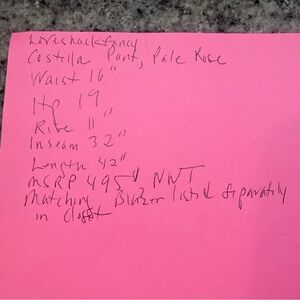 Loveshackfancy
Costilla Pant, Pale Rose
Waist 16"
Hip 19"
Rise 11"
Inseam 32"
Length 42"
MSRP 495$ NWT
Matching Blazer listed Separatily
in closet